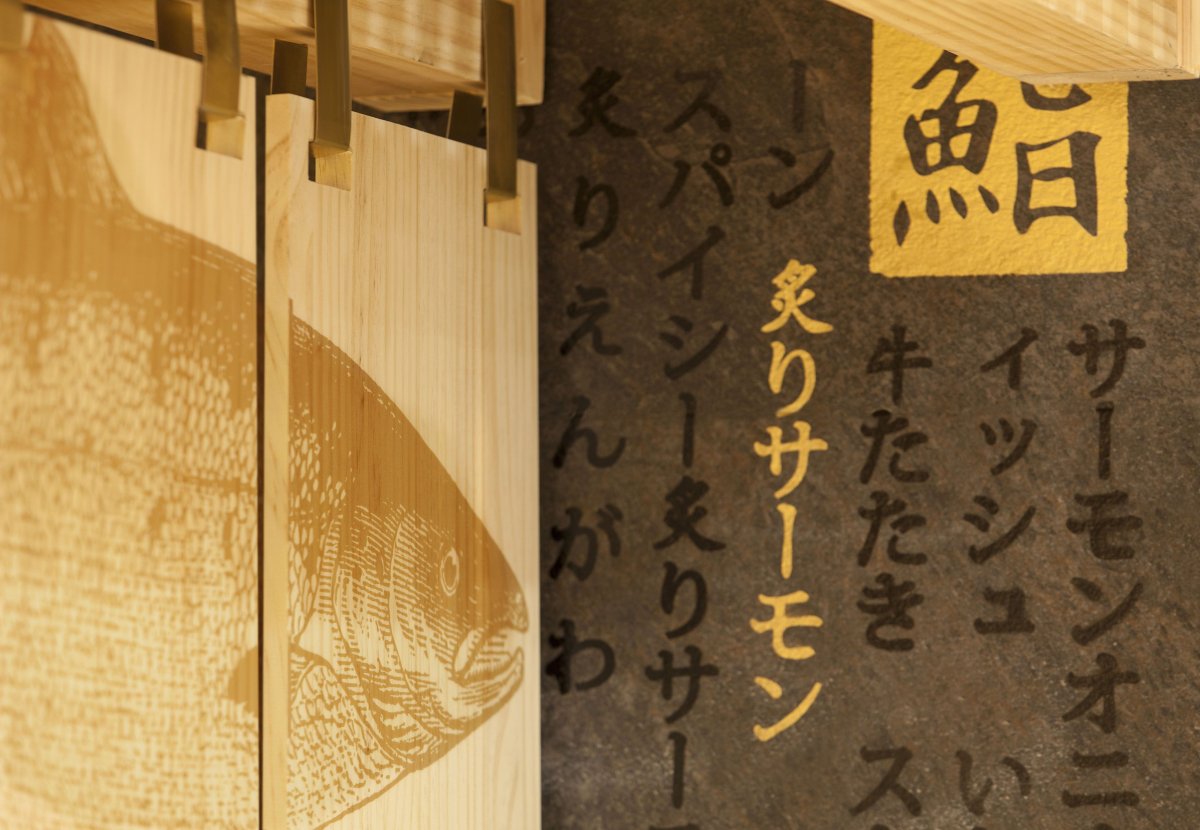 鮨
サーモンオニ
イッシュ い
牛たたき ス
ーン 炙りサーモン
スパイシー炙りサー
炙りえんがわ